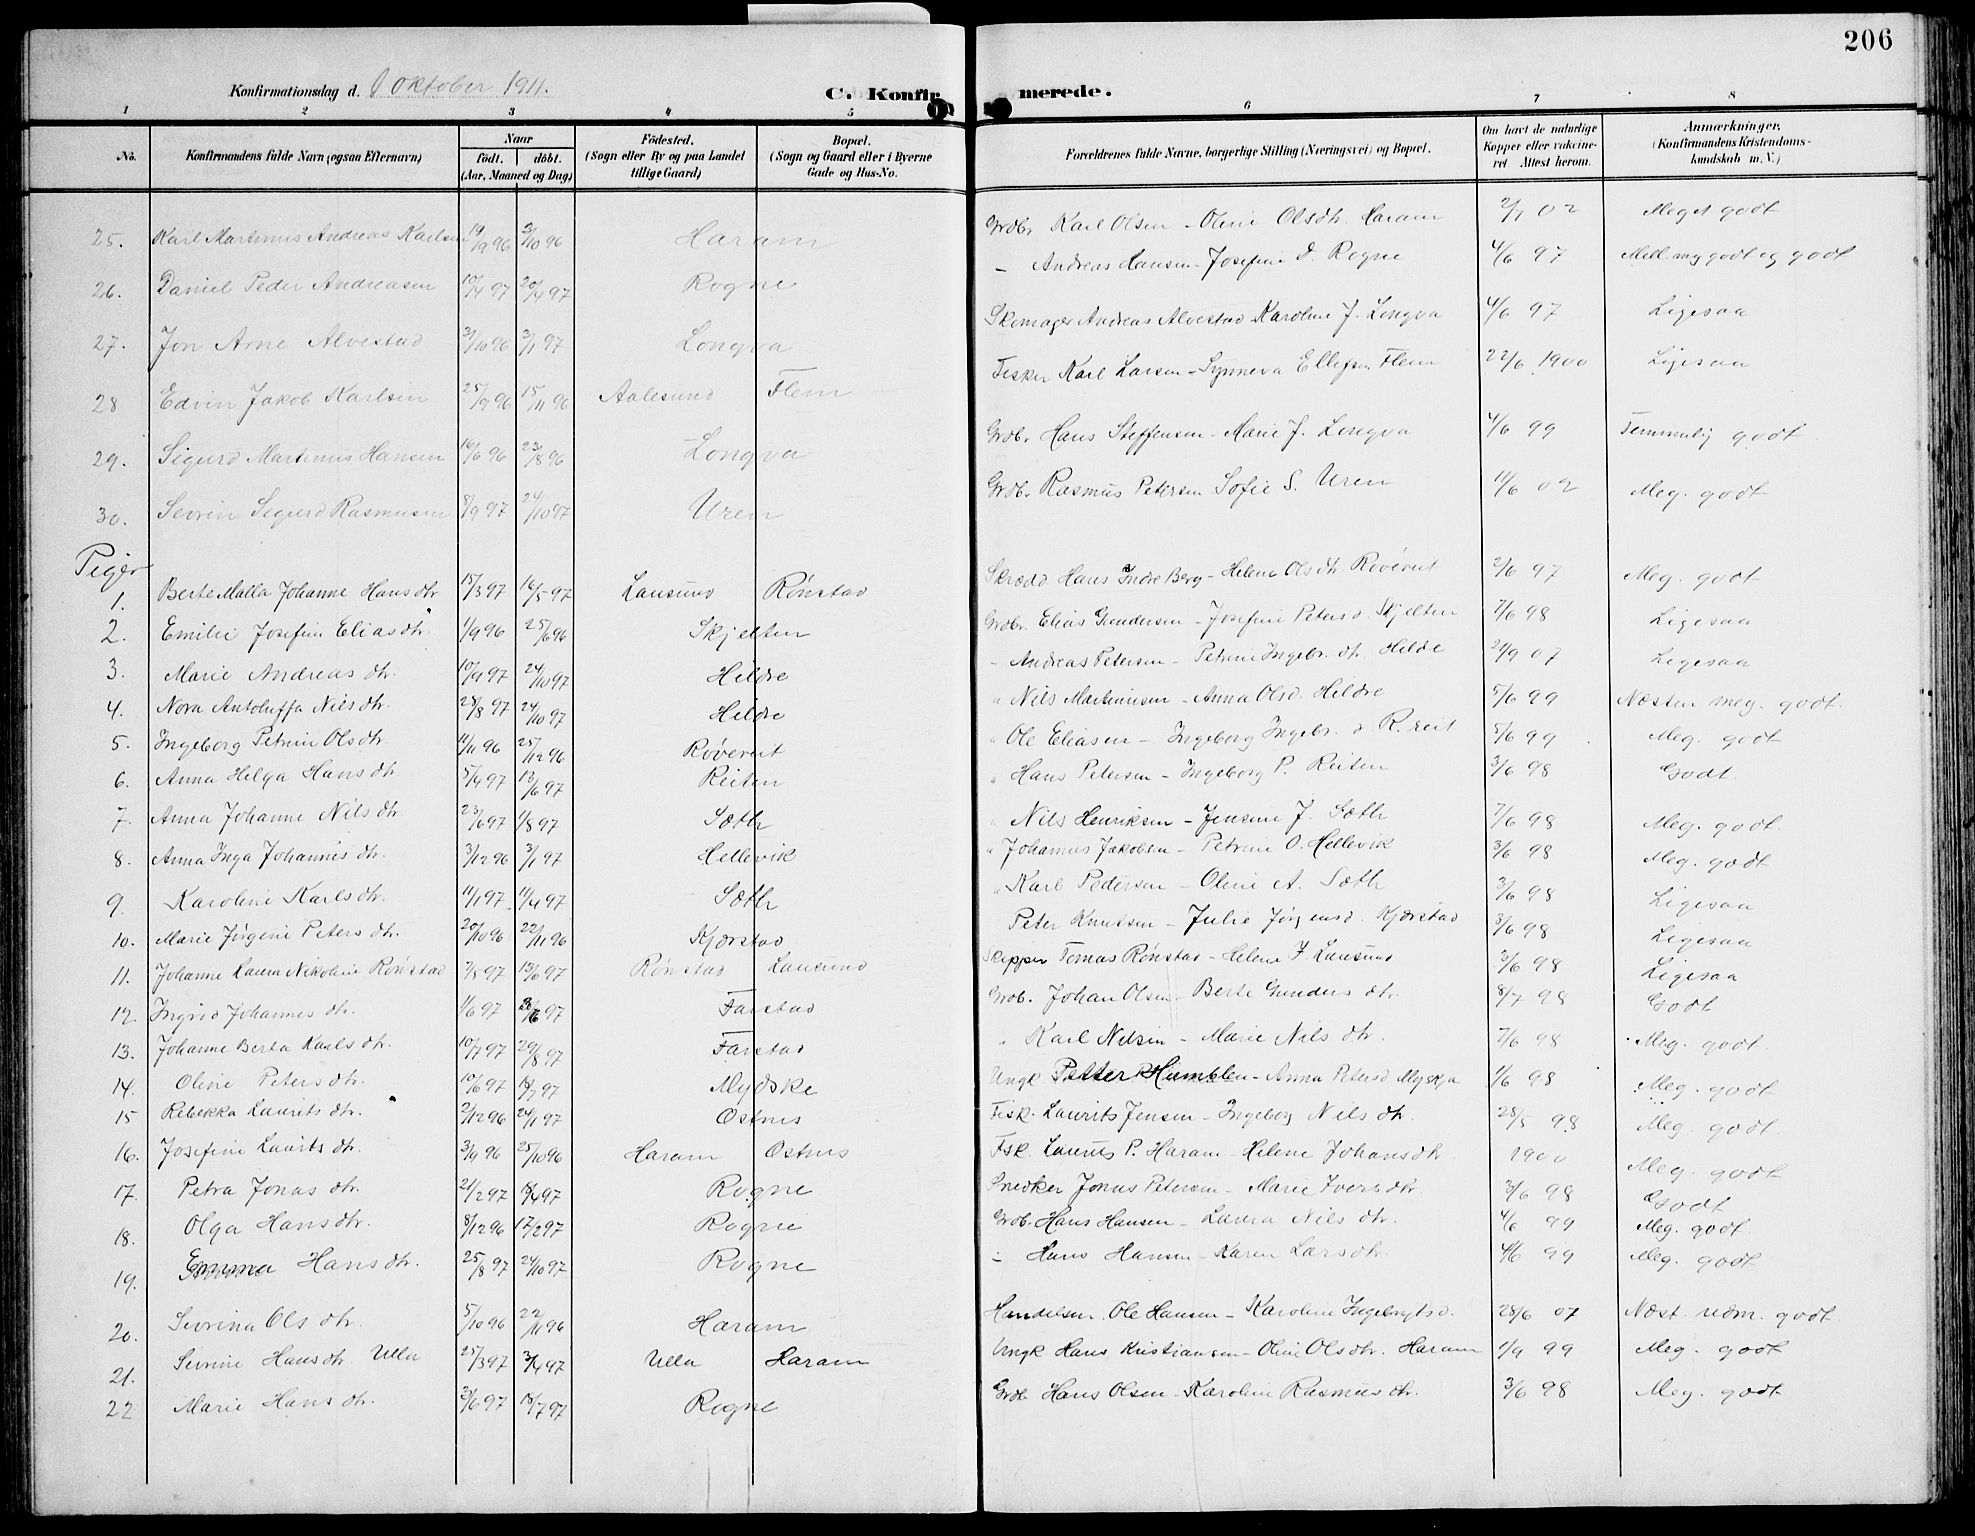 206
Konfirmationsdag d. 1 Oktober 1911.
C. Konfirmerede.
1 2 3 4 5 6 7 8
No.
Konfirmandens fulde Navn (ogsaa Efternavn)
Naar
födt. döbt.
(Aar, Maaned og Dag)
Födested.
(Sogn eller By og paa Landet
tillige Gaard)
Bopæl.
(Sogn og Gaard eller i Byerne
Gade og Hus-No.
Forældrenes fulde Navne, borgerlige Stilling (Næringsvei) og Bopæl.
Om havt de naturlige
Kopper eller vakcineret
Attest herom.
Anmærkninger.
(Konfirmandens Kristendomskundskab
m. V.)
25. Karl Martinus Andreas Karlsen 19/9 96 3/10 96 Haram Grdbr. Karl Olsen - Oline Olsdtr. Haram 2/7 02 Meget godt
26. Daniel Peder Andreasen 10/4 97 20/4 97 Rogne - Andreas Hansen - Josefine d. Rogne 4/6 97 Mell. mg godt og godt
27. Jon Arne Alvestad 31/10 96 3/1 97 Longva Skomager Andreas Alvestad Karoline J. Longva 4/6 97 Ligesaa
28 Edvin Jakob Karlsen 25/9 96 15/11 96 Aalesund Flem Fisker Karl Larsen - Synneva Ellefsen Flem 22/6 1900 Ligesaa
29. Sigurd Martinus Hansen 16/6 96 23/8 96 Longva Grdbr. Hans Steffensen - Marie J. Longva 4/6 99 Temmelig godt
30. Sevrin Sigurd Rasmusen 8/9 97 24/10 97 Uren Grdbr. Rasmus Petersen Sofie S. Uren 11/6 02 Meg. godt
Piger
1. Berte Malla Johanne Hansdtr 15/3 97 16/5 97 Lausund Rønstad Skrædd Hans Indre Berg - Helene Olsdtr Røverut 2/6 97 Meg. godt
2. Emilie Josefine Eliasdtr. 1/9 96 25/6 96 Skjelten Grdbr. Elias Gundersen - Josefine Petersd. Skjelten 7/6 98 Ligesaa
3. Marie Andreasdtr. 10/9 97 24/10 97 Hildre - Andreas Petersen - Petrine Ingebr.dtr. Hilde 29/9 07 Ligesaa
4. Nora Antoluffa Nilsdtr. 28/8 97 24/10 97 Hildre " Nils Martinusen - Anna Olsd. Hildre 5/6 99 Næsten meg. godt.
5. Ingeborg Petrine Olsdtr 11/11 96 25/12 96 Røverut " Ole Eliasen - Ingeborg Ingebr. d R.reit 5/6 99 Meg. godt
6. Anna Helga Hansdtr 5/4 97 13/6 97 Reiten " Hans Petersen - Ingeborg P. Reiten 3/6 98 Godt.
7. Anna Johanne Nilsdtr 23/6 97 1/8 97 Sætr " Nils Henriksen - Jensine J. Sætr 7/6 98 Meg. godt.
8. Anna Inga Johannesdtr. 3/12 96 3/1 97 Hellevik " Johannes Jakobsen - Petrine O. Hellevik 3/6 98 Meg. godt
9. Karoline Karlsdtr. 11/1 97 11/4 97 Sætr " Karl Pedersen - Oline A. Sætr 3/6 98 Ligesaa
10. Marie Jørgine Petersdtr. 20/10 96 22/11 96 Kjærstad Peter Knutsen - Julie Jørgensd. Kjærstad 3/6 98 Ligesaa
11. Johanne Laura Nikoline Rønstad 7/5 97 13/6 97 Rønstad Lausund Skipper Tomas Rønstad - Helene F. Lausund 3/6 98 Ligesaa
12. Ingrid Johannesdtr. 1/6 97 /6 97 Farstad Grdb. Johan Olsen - Berte Gundersdtr. 8/7 98 Godt
13. Johanne Berta Karlsdtr. 10/7 97 29/8 97 Farstad " Karl Nilsen - Marie Nilsdtr. 7/6 98 Meg. godt.
14. Oline Petersdtr. 10/6 97 18/7 97 Mydske Ungk Petter Humblen - Anna Petersd Myskja 1/6 98 Meg. godt
15 Rebekka Lauritsdtr. 2/12 96 24/1 97 Østnes Fisk. Laurits Jensen - Ingeborg Nilsdtr. 28/5 98 Meg. godt
16. Josefine Lauritsdtr. 3/9 96 25/10 96 Haram Østnes Fsk. Laurits P. Haram - Helene Johansdtr. 1900 Meg. godt
17. Petra Jonasdtr. 21/2 97 18/4 97 Rogne Snedker Jonas Petersen - Marie Iversdtr. 3/6 98 Godt
18. Olga Hansdtr. 8/12 96 17/2 97 Rogne Grdb. Hans Hansen - Laura Nilsdtr. 4/6 99 Meg. godt
19. Emma Hansdtr. 25/8 97 24/10 97 Rogne - Hans Hansen - Karen Larsdtr. 4/6 99 Meg. godt
20. Sevrina Olsdtr. 5/10 96 22/11 96 Haram Handelsm. Ole Hansen - Karoline Ingebrigtsd. 28/6 07 Næst. udm. godt.
21. Sevrine Hansdtr. Ulla 25/3 97 3/4 97 Ulla Haram Ungk Hans Kristiansen - Oline Olsdtr. Haram 1/9 99 Meg. godt
22 Marie Hansdtr. 3/6 97 18/7 97 Rogne Grdb Hans Olsen - Karoline Rasmusdtr. 3/6 98 Meg. godt